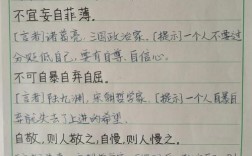 不宜妄自菲薄。
[言者]诸葛亮,三国政治家。[提示]一个人不要过
分贬低自己,要有自尊、自信心。
不可自暴自弃自屈。
[言者]陆九渊,宋朝哲学家。[提示]一个人自暴自
弃就失去了上进的希望。
自敬,则人敬之;自慢,则人慢之。